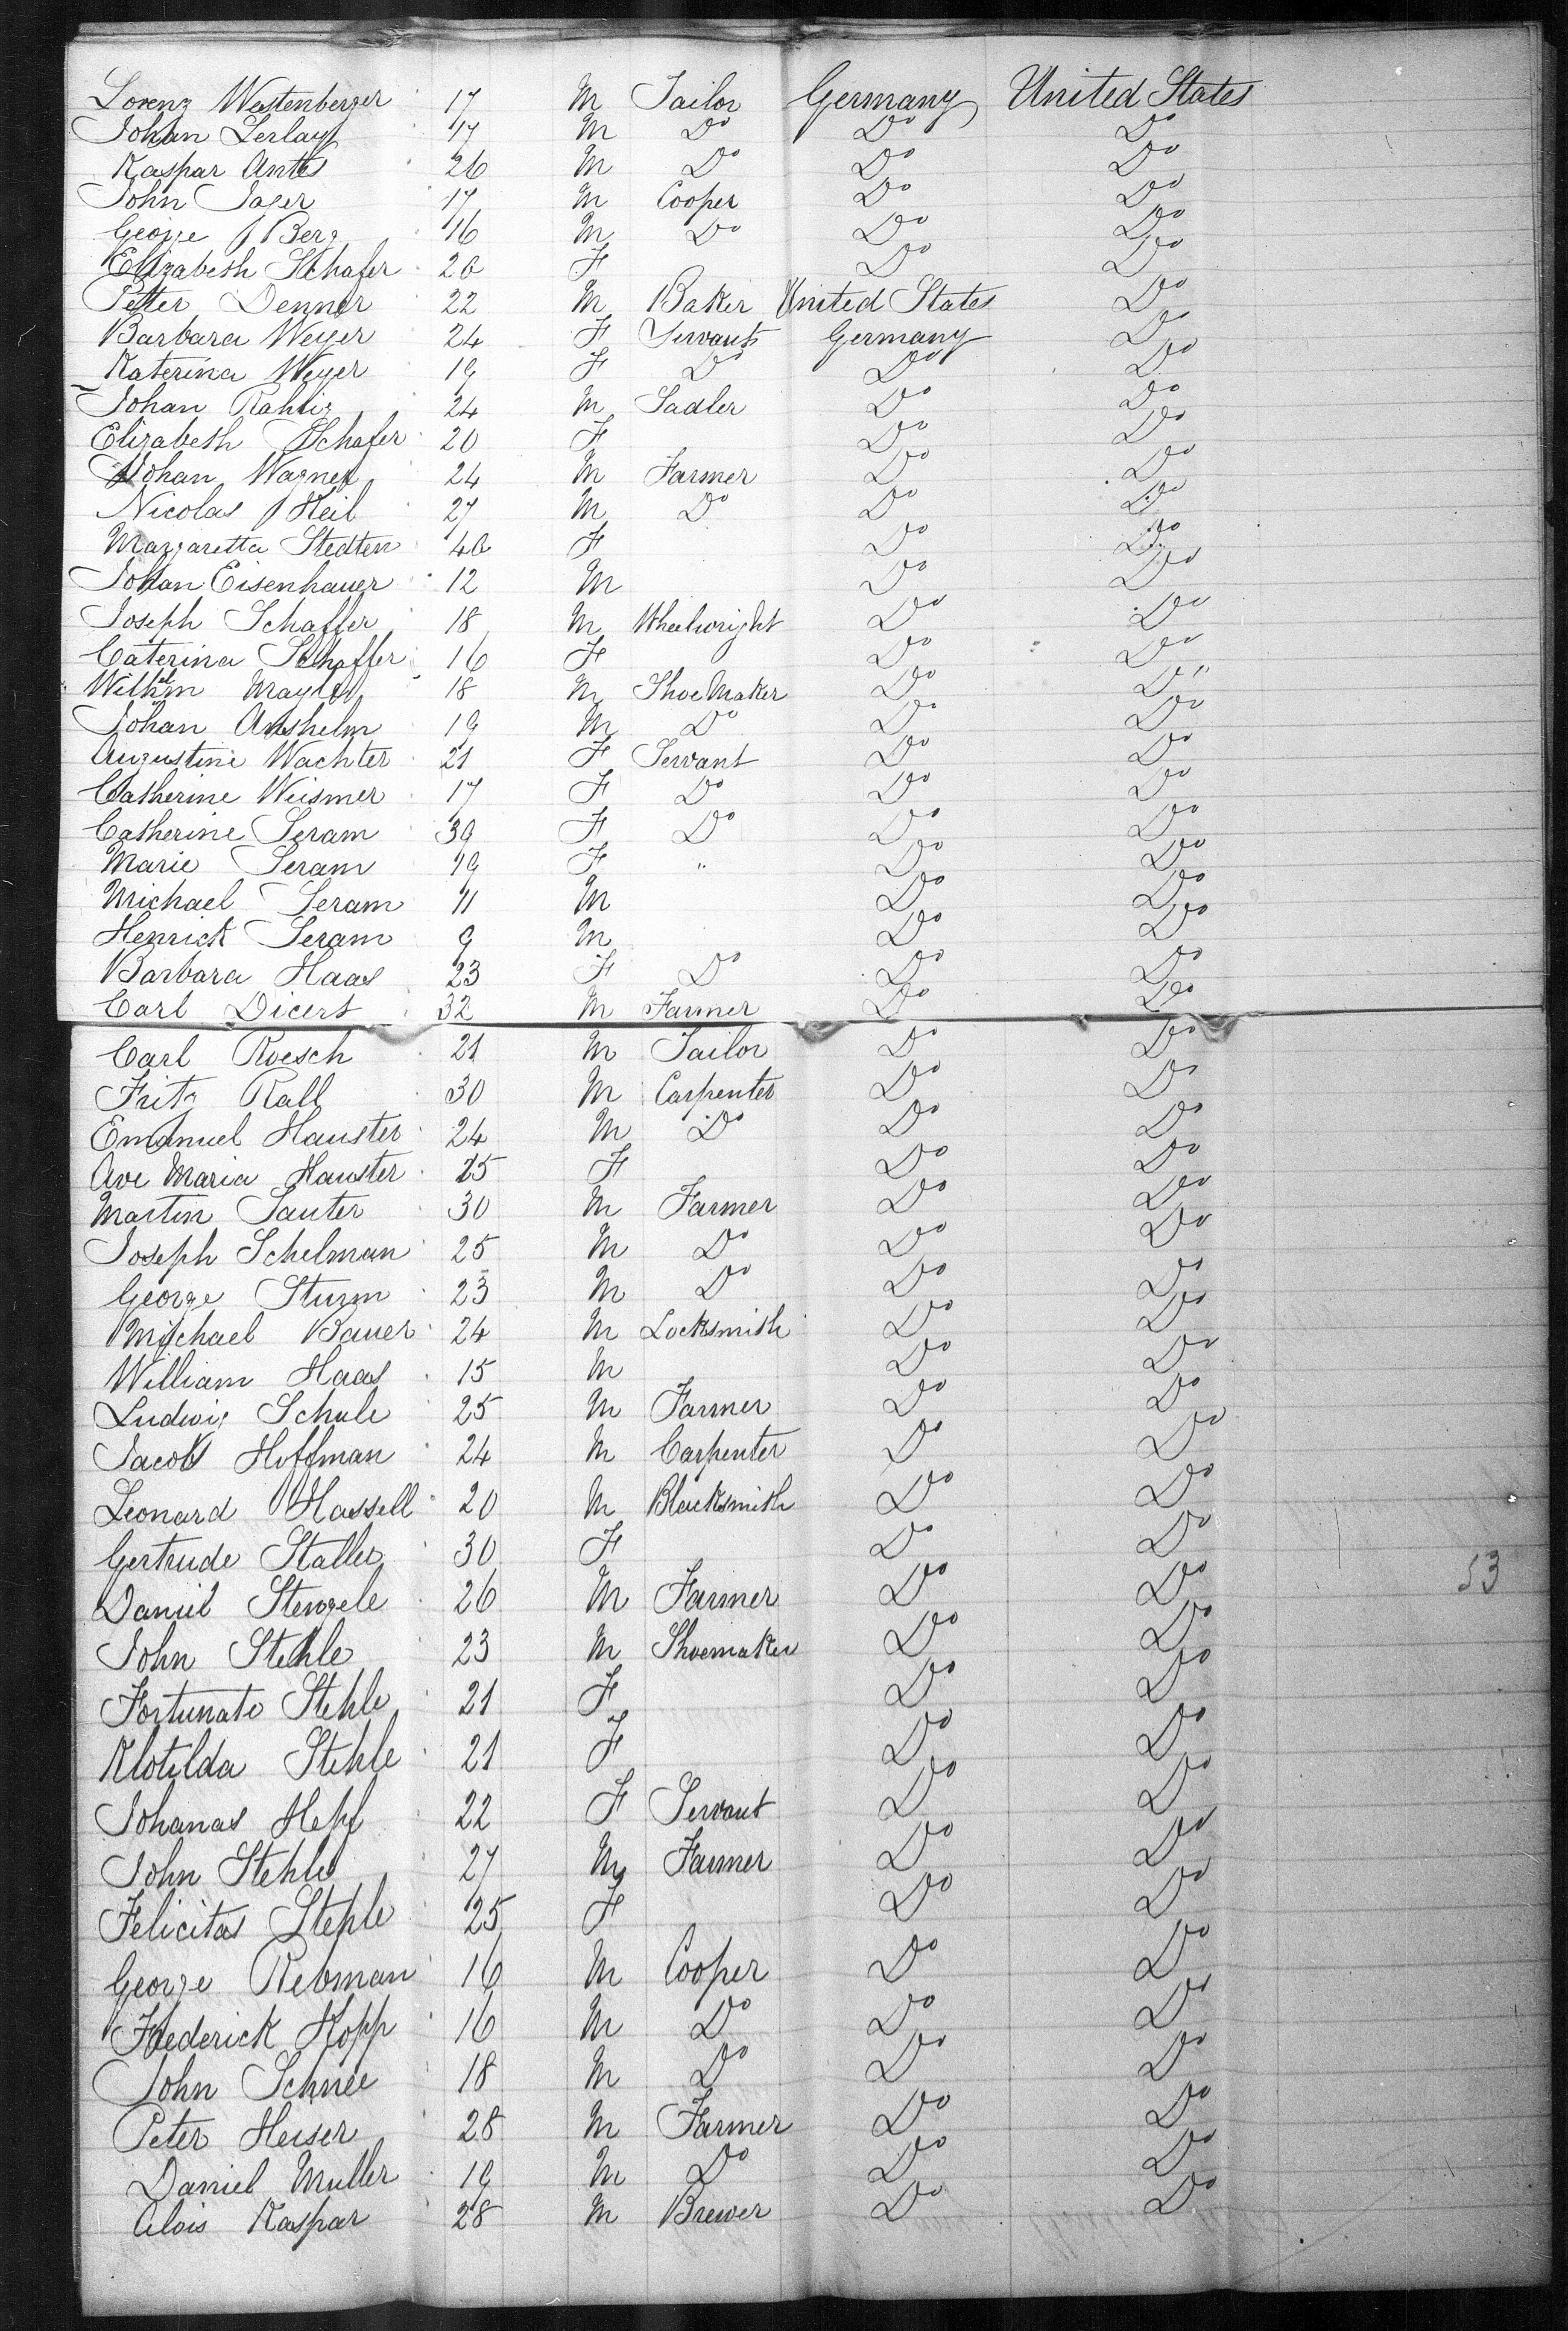 Lorenz Westenberger 17 M Tailor Germany United States
Johan Zerlaut 17 M Do Do Do
Kaspar Antes 26 M Do Do Do
John Jager 17 M Cooper Do Do
George Berg 16 M Do Do Do
Elizabesh Schafer 20 F Do Do
Petter Denner 22 M Baker United States Do
Barbara Weyer 24 F Servants Germany Do
Katerina Weyer 19 F Do Do Do
Johan Rahlig 24 M Sadler Do Do
Elizabesh Schafer 20 F Do Do
Johan Wagner 24 M Farmer Do Do
Nicolas Heil 27 M Do Do Do
Margaretta Stedten 40 F Do Do
Johan Eisenhauer 12 M Do Do
Joseph Schaffer 18 M Wheelwright Do Do
Caterina Schaffer 16 F Do Do
18 M Shoe Maker Do Do
Johan Anshelm 19 M Do Do Do
Augustine Wachter 21 F Servant Do Do
Catherine Weismer 17 F Do Do Do
Catherine Seram 39 F Do Do Do
Marie Seram 19 F " Do Do
Michael Seram 11 M Do Do
Henrick Seram 9 M Do Do
Barbara Haas 23 F Do Do Do
Carl Dicert 32 M Farmer Do Do
Carl Roesch 21 M Tailor Do Do
Fritz Rall 30 M Carpenter Do Do
Emanuel Hauster 24 M Do Do Do
Ave Maria Hauster 25 F Do Do
Martin Sauter 30 M Farmer Do Do
Joseph Schelman 25 M Do Do Do
George Sturm 23 M Do Do Do
Michael Bauer 24 M Locksmish Do Do
William Haas 15 M Do Do
Ludwig Schule 25 M Farmer Do Do
Jacob Hoffman 24 M Carpenter Do Do
Leonard Hassell 20 M Blacksmish Do Do
Gertrude Staller 30 F Do Do
53
Daniel Stengele 26 M Farmer Do Do
John Stehle 23 M Shoemaker Do Do
Fortunate Stehle 21 F Do Do
Klotilda Stehle 21 F Do Do
Johanas Hepf 22 F Servant Do Do
John Stehle 27 M Farmer Do Do
Felicitas Stehle 25 F Do Do
George Rebman 16 M Cooper Do Do
Frederick Kopp 16 M Do Do Do
John Schnee 18 M Do Do Do
Peter Heiser 28 M Farmer Do Do
Daniel Muller 19 M Do Do Do
Alois Kaspar 28 M Brewer Do Do